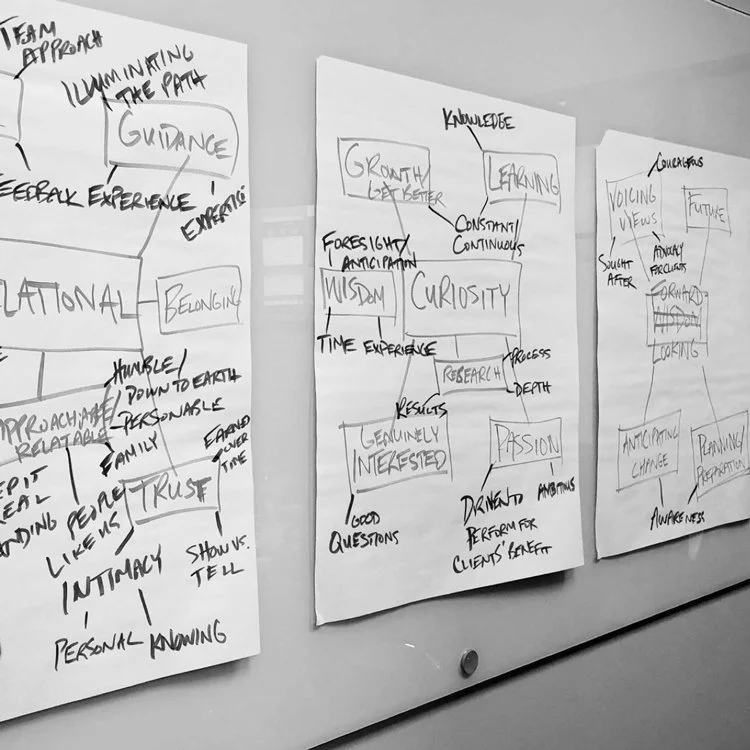 TEAM
APPROACH
ILLUMINATING
THE PATH
GUIDANCE
FEEDBACK
EXPERIENCE
EXPERTISE
LATIONAL
BELONGING
HUMBLE/
DOWN TO EARTH
PERSONABLE
APPROACHABLE/
RELATABLE
FAMILY
EARNED
OVER
TIME
TRUST
PEOPLE
LIKE US
INTIMACY
SHOW VS.
TELL
PERSONAL
KNOWING
KNOWLEDGE
GROWTH/
GET BETTER
LEARNING
CONSTANT/
CONTINUOUS
FORESIGHT/
ANTICIPATION
WISDOM
CURIOSITY
TIME
EXPERIENCE
RESEARCH
PROCESS
DEPTH
RESULTS
GENUINELY
INTERESTED
PASSION
GOOD
QUESTIONS
DRIVEN TO
PERFORM FOR
CLIENTS' BENEFIT
AMBITIOUS
COURAGEOUS
VOICING
VIEWS
FUTURE
SOUGHT
AFTER
ADVOCACY
FOR CLIENTS
FORWARD
LOOKING
ANTICIPATING
CHANGE
PLANNING/
PREPARATION
AWARENESS